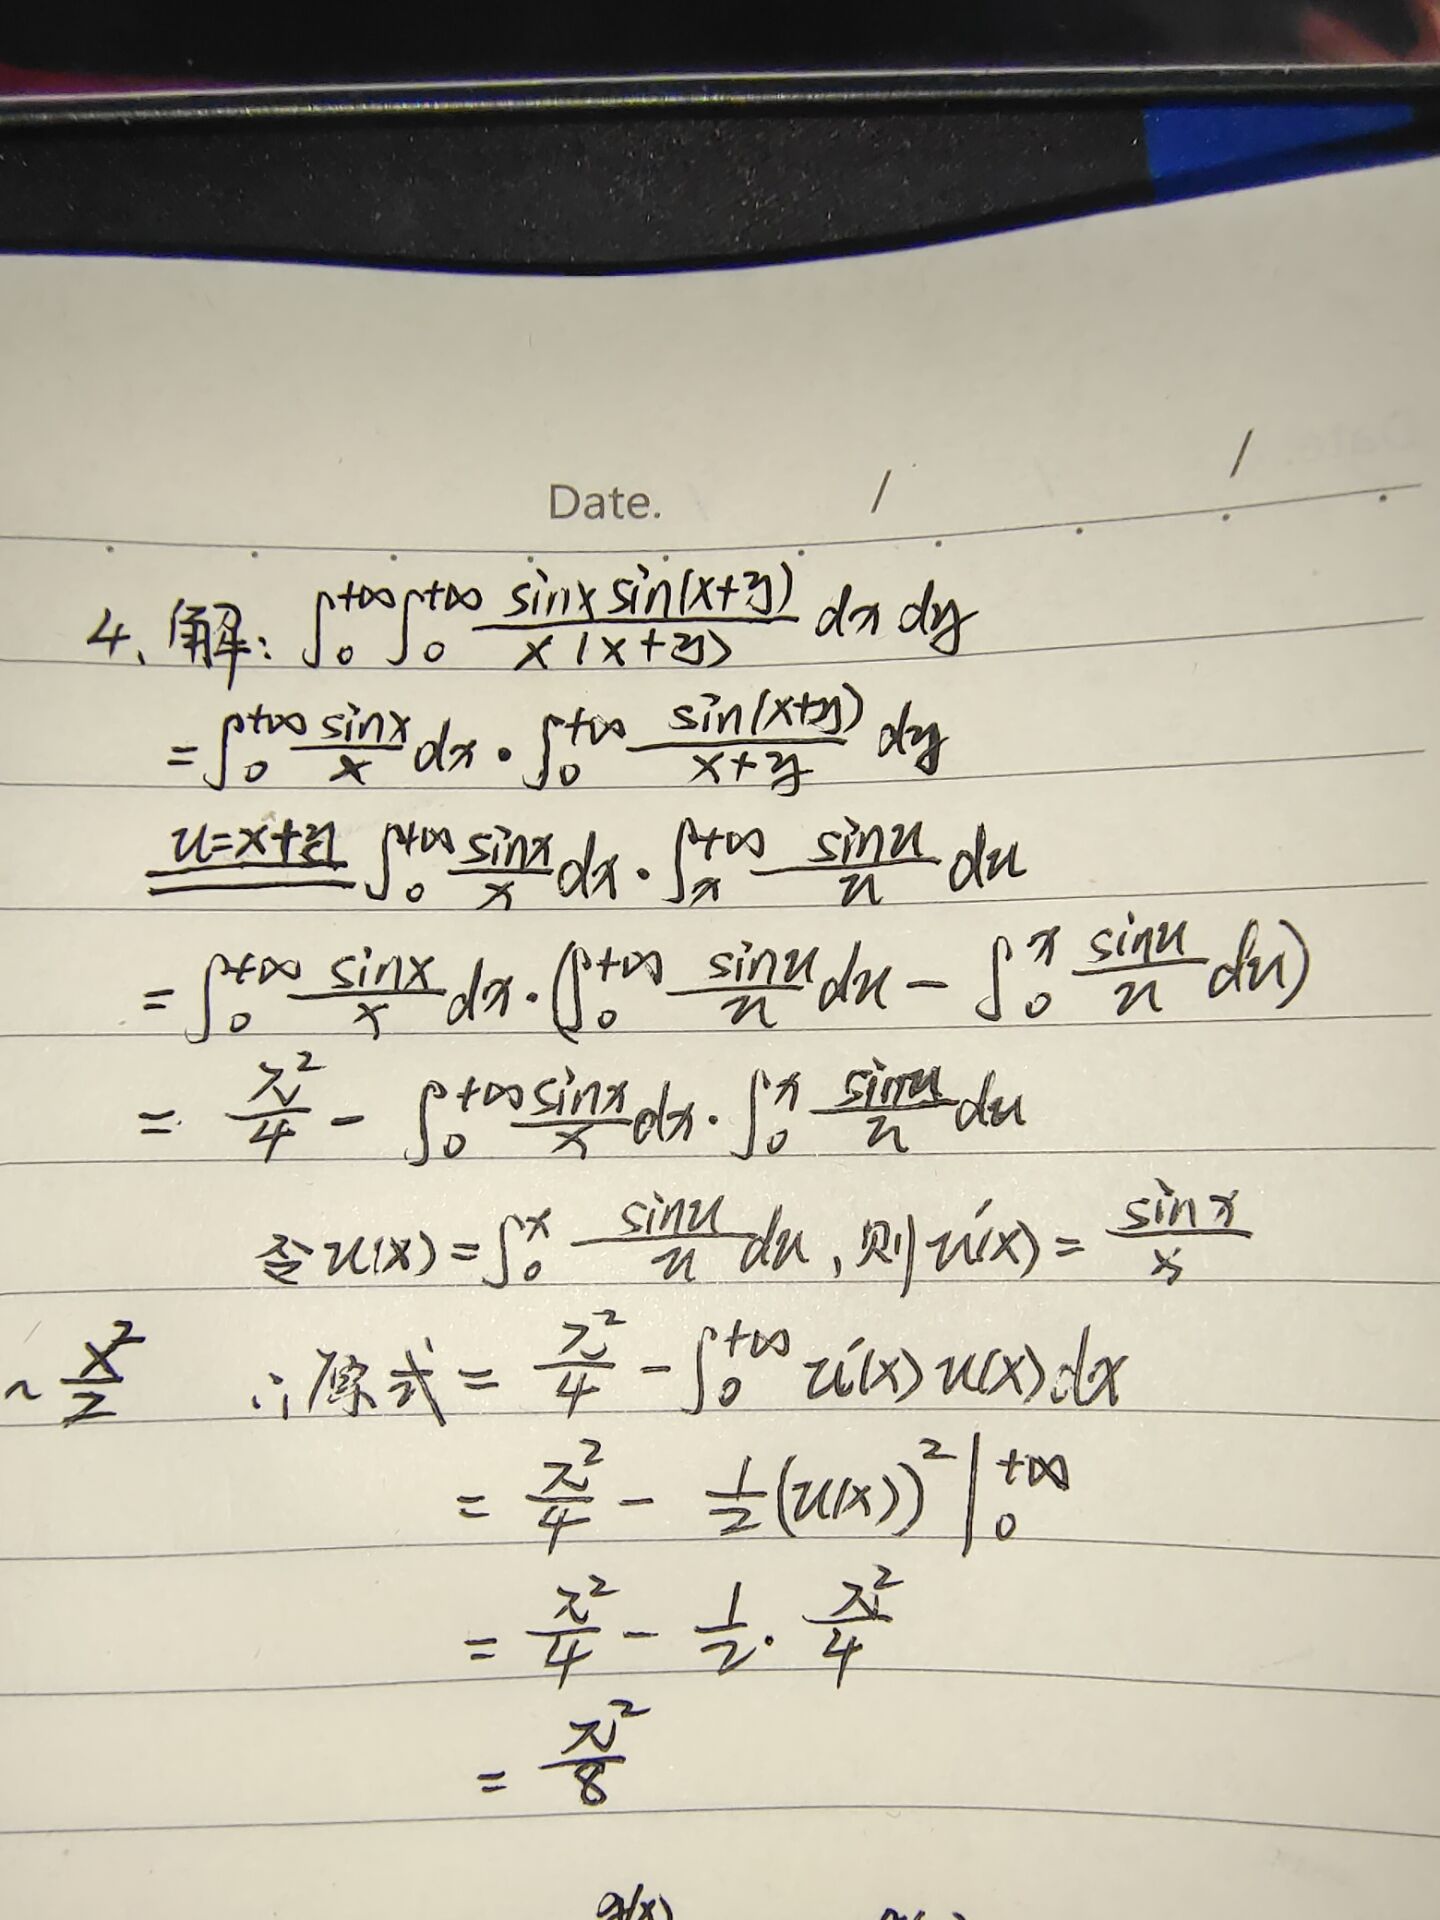 Date. / /
4、解: ∫₀^{+∞}∫₀^{+∞} \frac{sinx sin(x+y)}{x(x+y)} dx dy
= ∫₀^{+∞} \frac{sinx}{x} dx · ∫₀^{+∞} \frac{sin(x+y)}{x+y} dy
\overset{u=x+y}{=} ∫₀^{+∞} \frac{sinx}{x} dx · ∫_x^{+∞} \frac{sinu}{u} du
= ∫₀^{+∞} \frac{sinx}{x} dx · (∫₀^{+∞} \frac{sinu}{u} du - ∫₀^x \frac{sinu}{u} du)
= \frac{π²}{4} - ∫₀^{+∞} \frac{sinx}{x} dx · ∫₀^x \frac{sinu}{u} du
令 u(x) = ∫₀^x \frac{sinu}{u} du, 则 u'(x) = \frac{sinx}{x}
~ \frac{x²}{2} ∴原式 = \frac{π²}{4} - ∫₀^{+∞} u'(x) u(x) dx
= \frac{π²}{4} - \frac{1}{2} (u(x))² |₀^{+∞}
= \frac{π²}{4} - \frac{1}{2} · \frac{π²}{4}
= \frac{π²}{8}